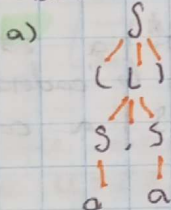 a)
S
( L )
S , S
a a